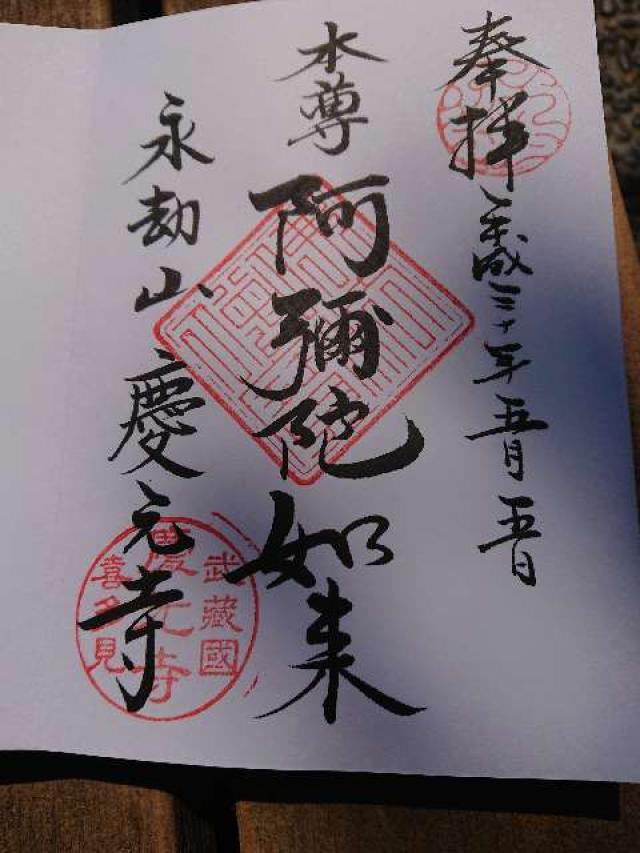 奉拝 平成三十年五月五日
本尊 阿彌陀如来
永劫山 慶元寺
武蔵國
慶元寺
喜多見